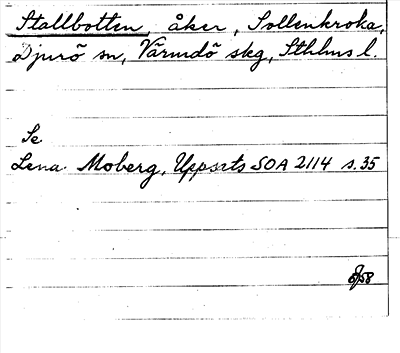 Stallbotten, åker, Sollenkroka,
Djurö sn, Värmdö skg, Sthlms l.
Se
Lena Moberg, Uppsats SOA 2114 s.35